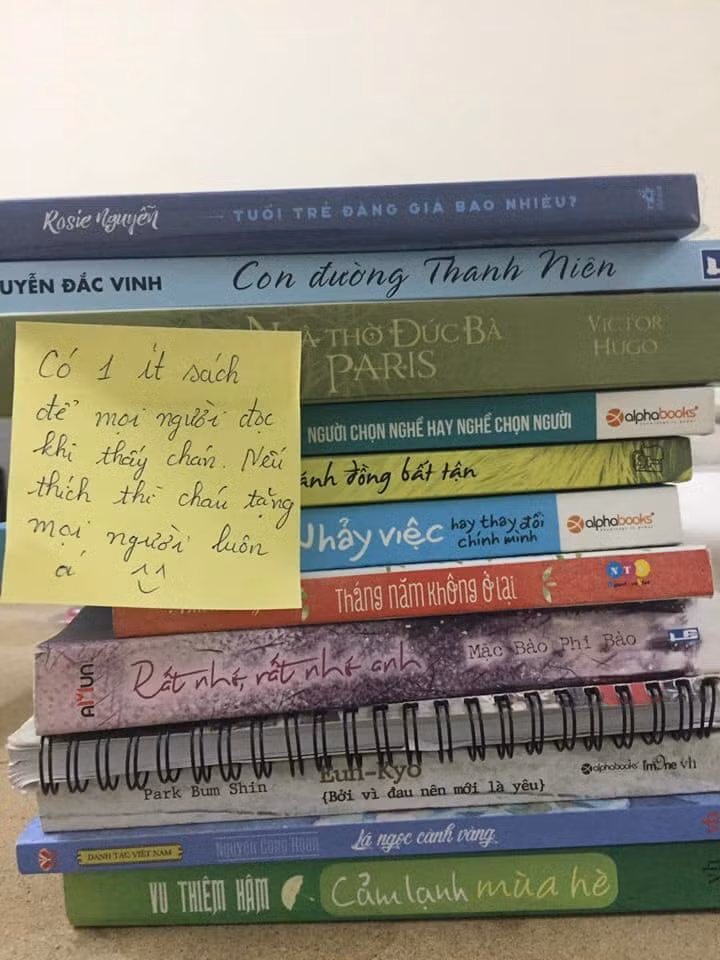 Rosie Nguyễn TUỔI TRẺ ĐÁNG GIÁ BAO NHIÊU?
UYỄN ĐẮC VINH Con đường Thanh Niên
THỜ ĐỨC BÀ
PARIS
VICTOR
HUGO
Có 1 ít sách
để mọi người đọc
khi thấy chán. Nếu
thích thì cháu tặng
mọi người luôn
á ^^
NGƯỜI CHỌN NGHỀ HAY NGHỀ CHỌN NGƯỜI alphabooks
ánh đồng bất tận
Nhảy việc hay thay đổi
chính mình
alphabooks
Tháng năm không ở lại
AMUN Rất nhớ, rất nhớ anh Mặc Bảo Phi Bảo
Park Bum Shin Eun-Kyo
{Bởi vì đau nên mới là yêu}
alphabooks
DANH TÁC VIỆT NAM Nguyễn Công Hoan Lá ngọc cành vàng
VU THIÊM HẬM Cảm lạnh mùa hè